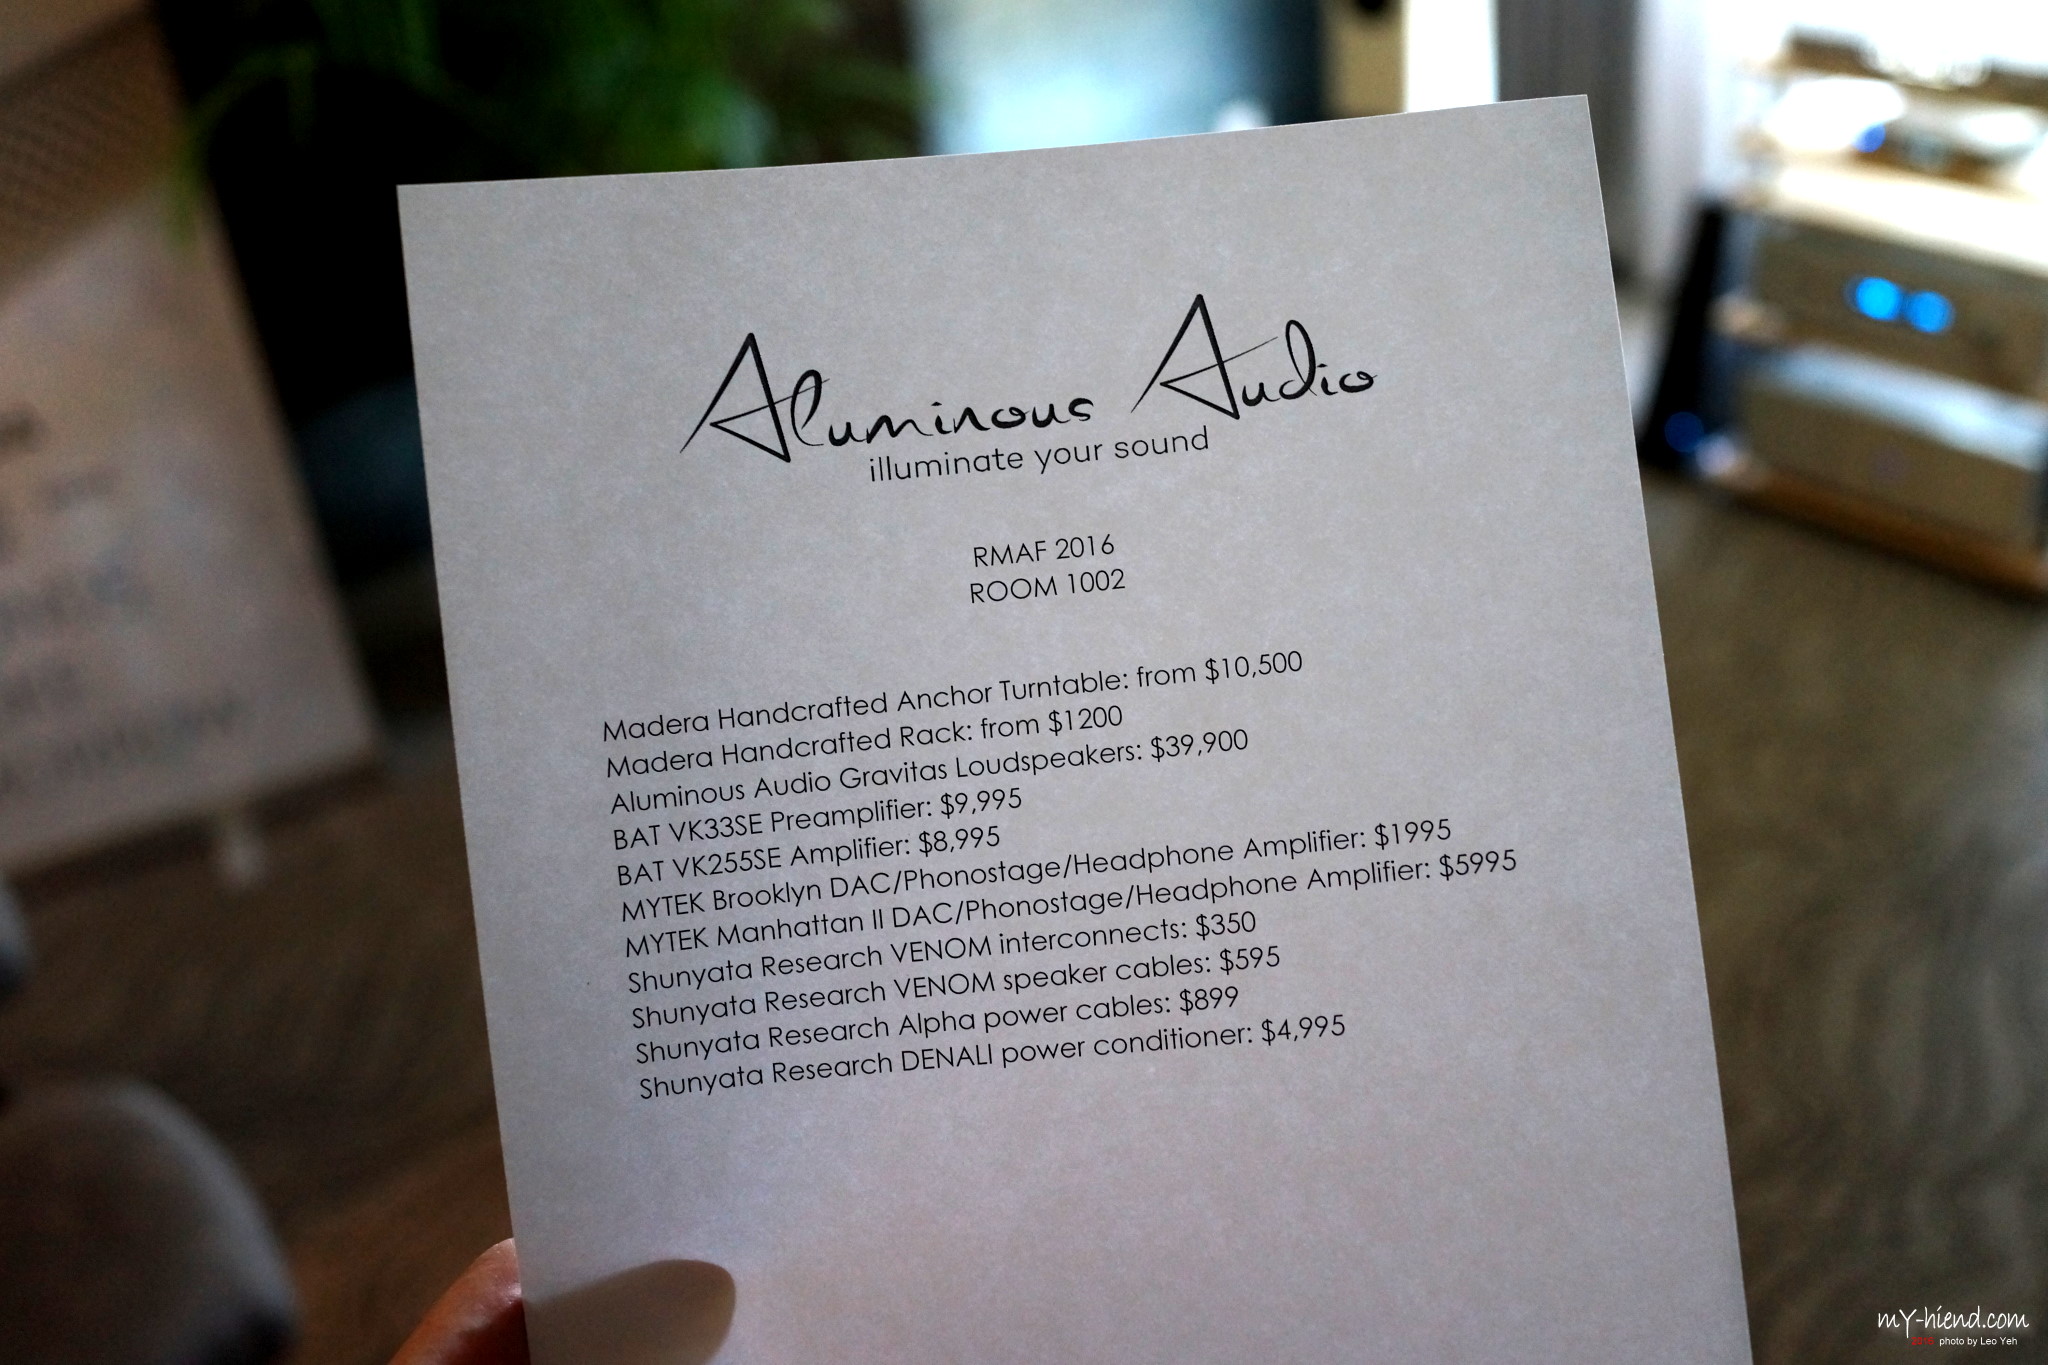 Aluminous Audio
illuminate your sound
RMAF 2016
ROOM 1002
Madera Handcrafted Anchor Turntable: from $10,500
Madera Handcrafted Rack: from $1200
Aluminous Audio Gravitas Loudspeakers: $39,900
BAT VK33SE Preamplifier: $9,995
BAT VK255SE Amplifier: $8,995
MYTEK Brooklyn DAC/Phonostage/Headphone Amplifier: $1995
MYTEK Manhattan II DAC/Phonostage/Headphone Amplifier: $5995
Shunyata Research VENOM interconnects: $350
Shunyata Research VENOM speaker cables: $595
Shunyata Research Alpha power cables: $899
Shunyata Research DENALI power conditioner: $4,995
mY-hiend.com
2016 photo by Leo Yeh